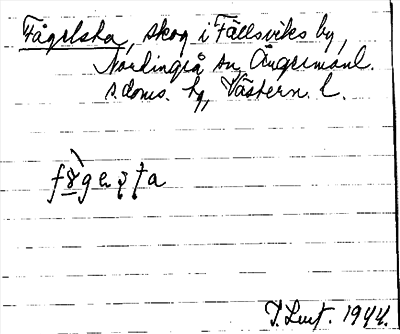 Fågelska, skog i Fällsviks by,
Nordingrå sn Ångermanl.
s. doms. hg, Västern. l.
T. Lunt. 1944.